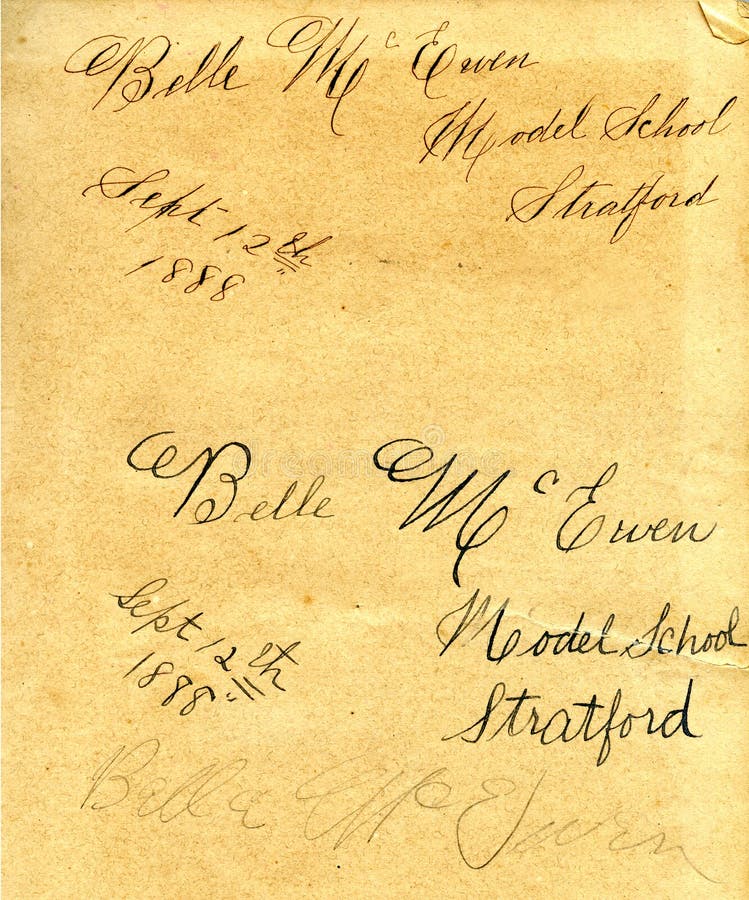 Belle Mc Ewen
Model School
Stratford
Sept 12th
1888
Belle Mc Ewen
Model School
Stratford
Sept 12th
1888
Bella Mc Ewen